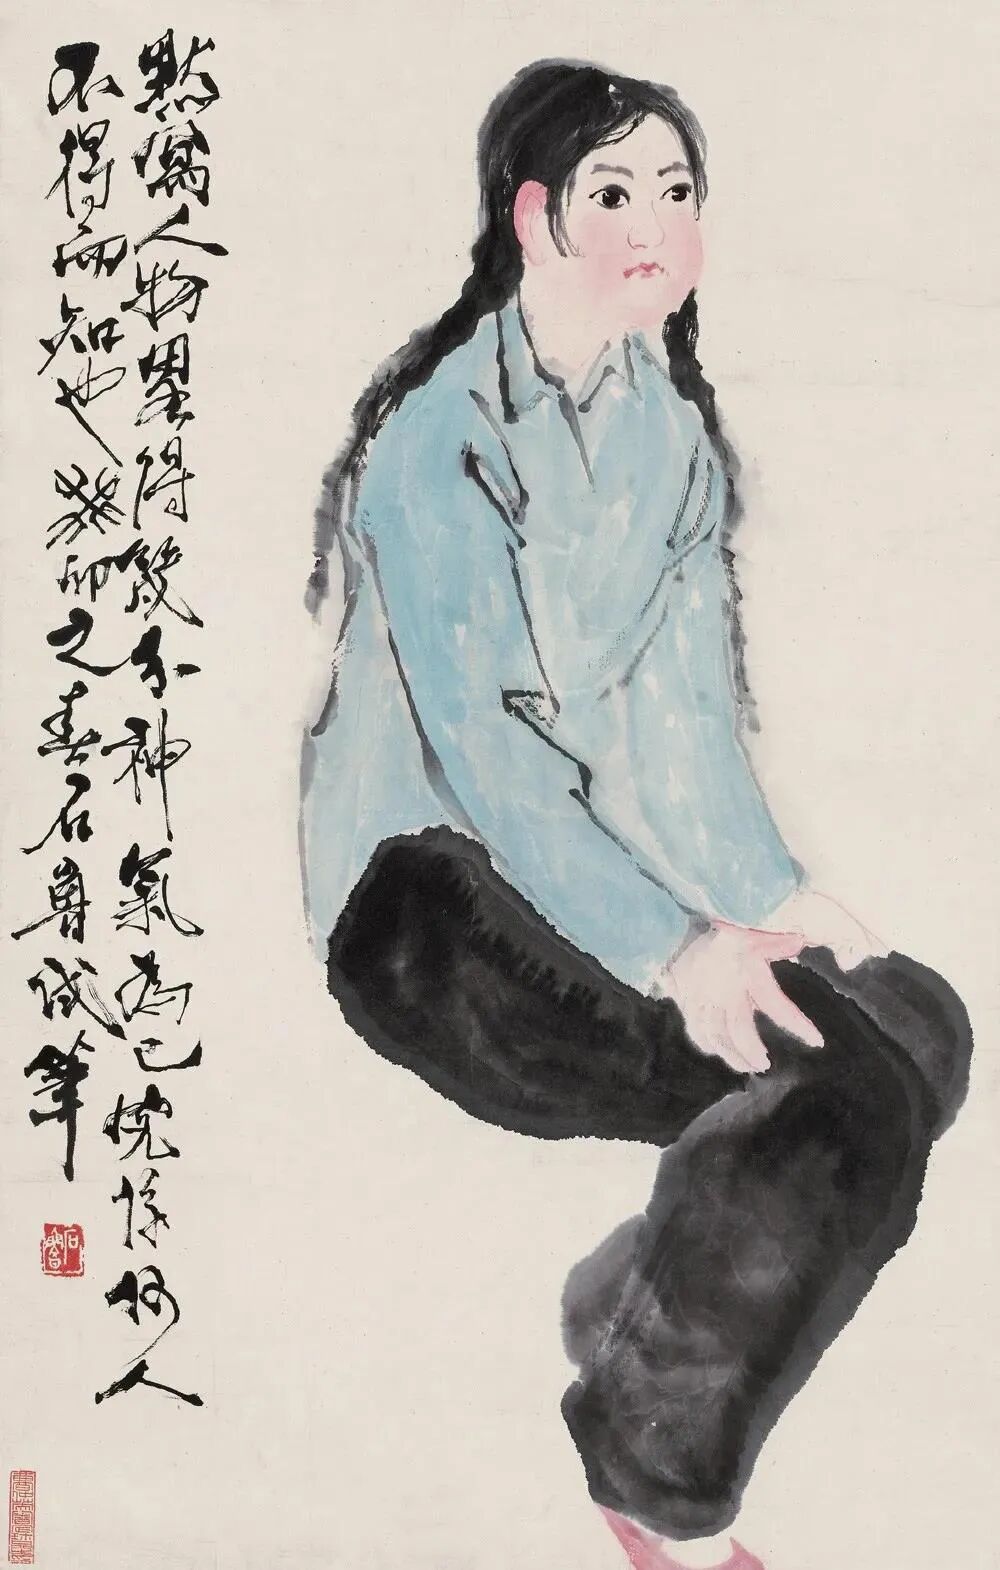 默寫人物畧得幾分神氣為已恍係何人
不得而知也癸卯之春石魯試筆
石魯